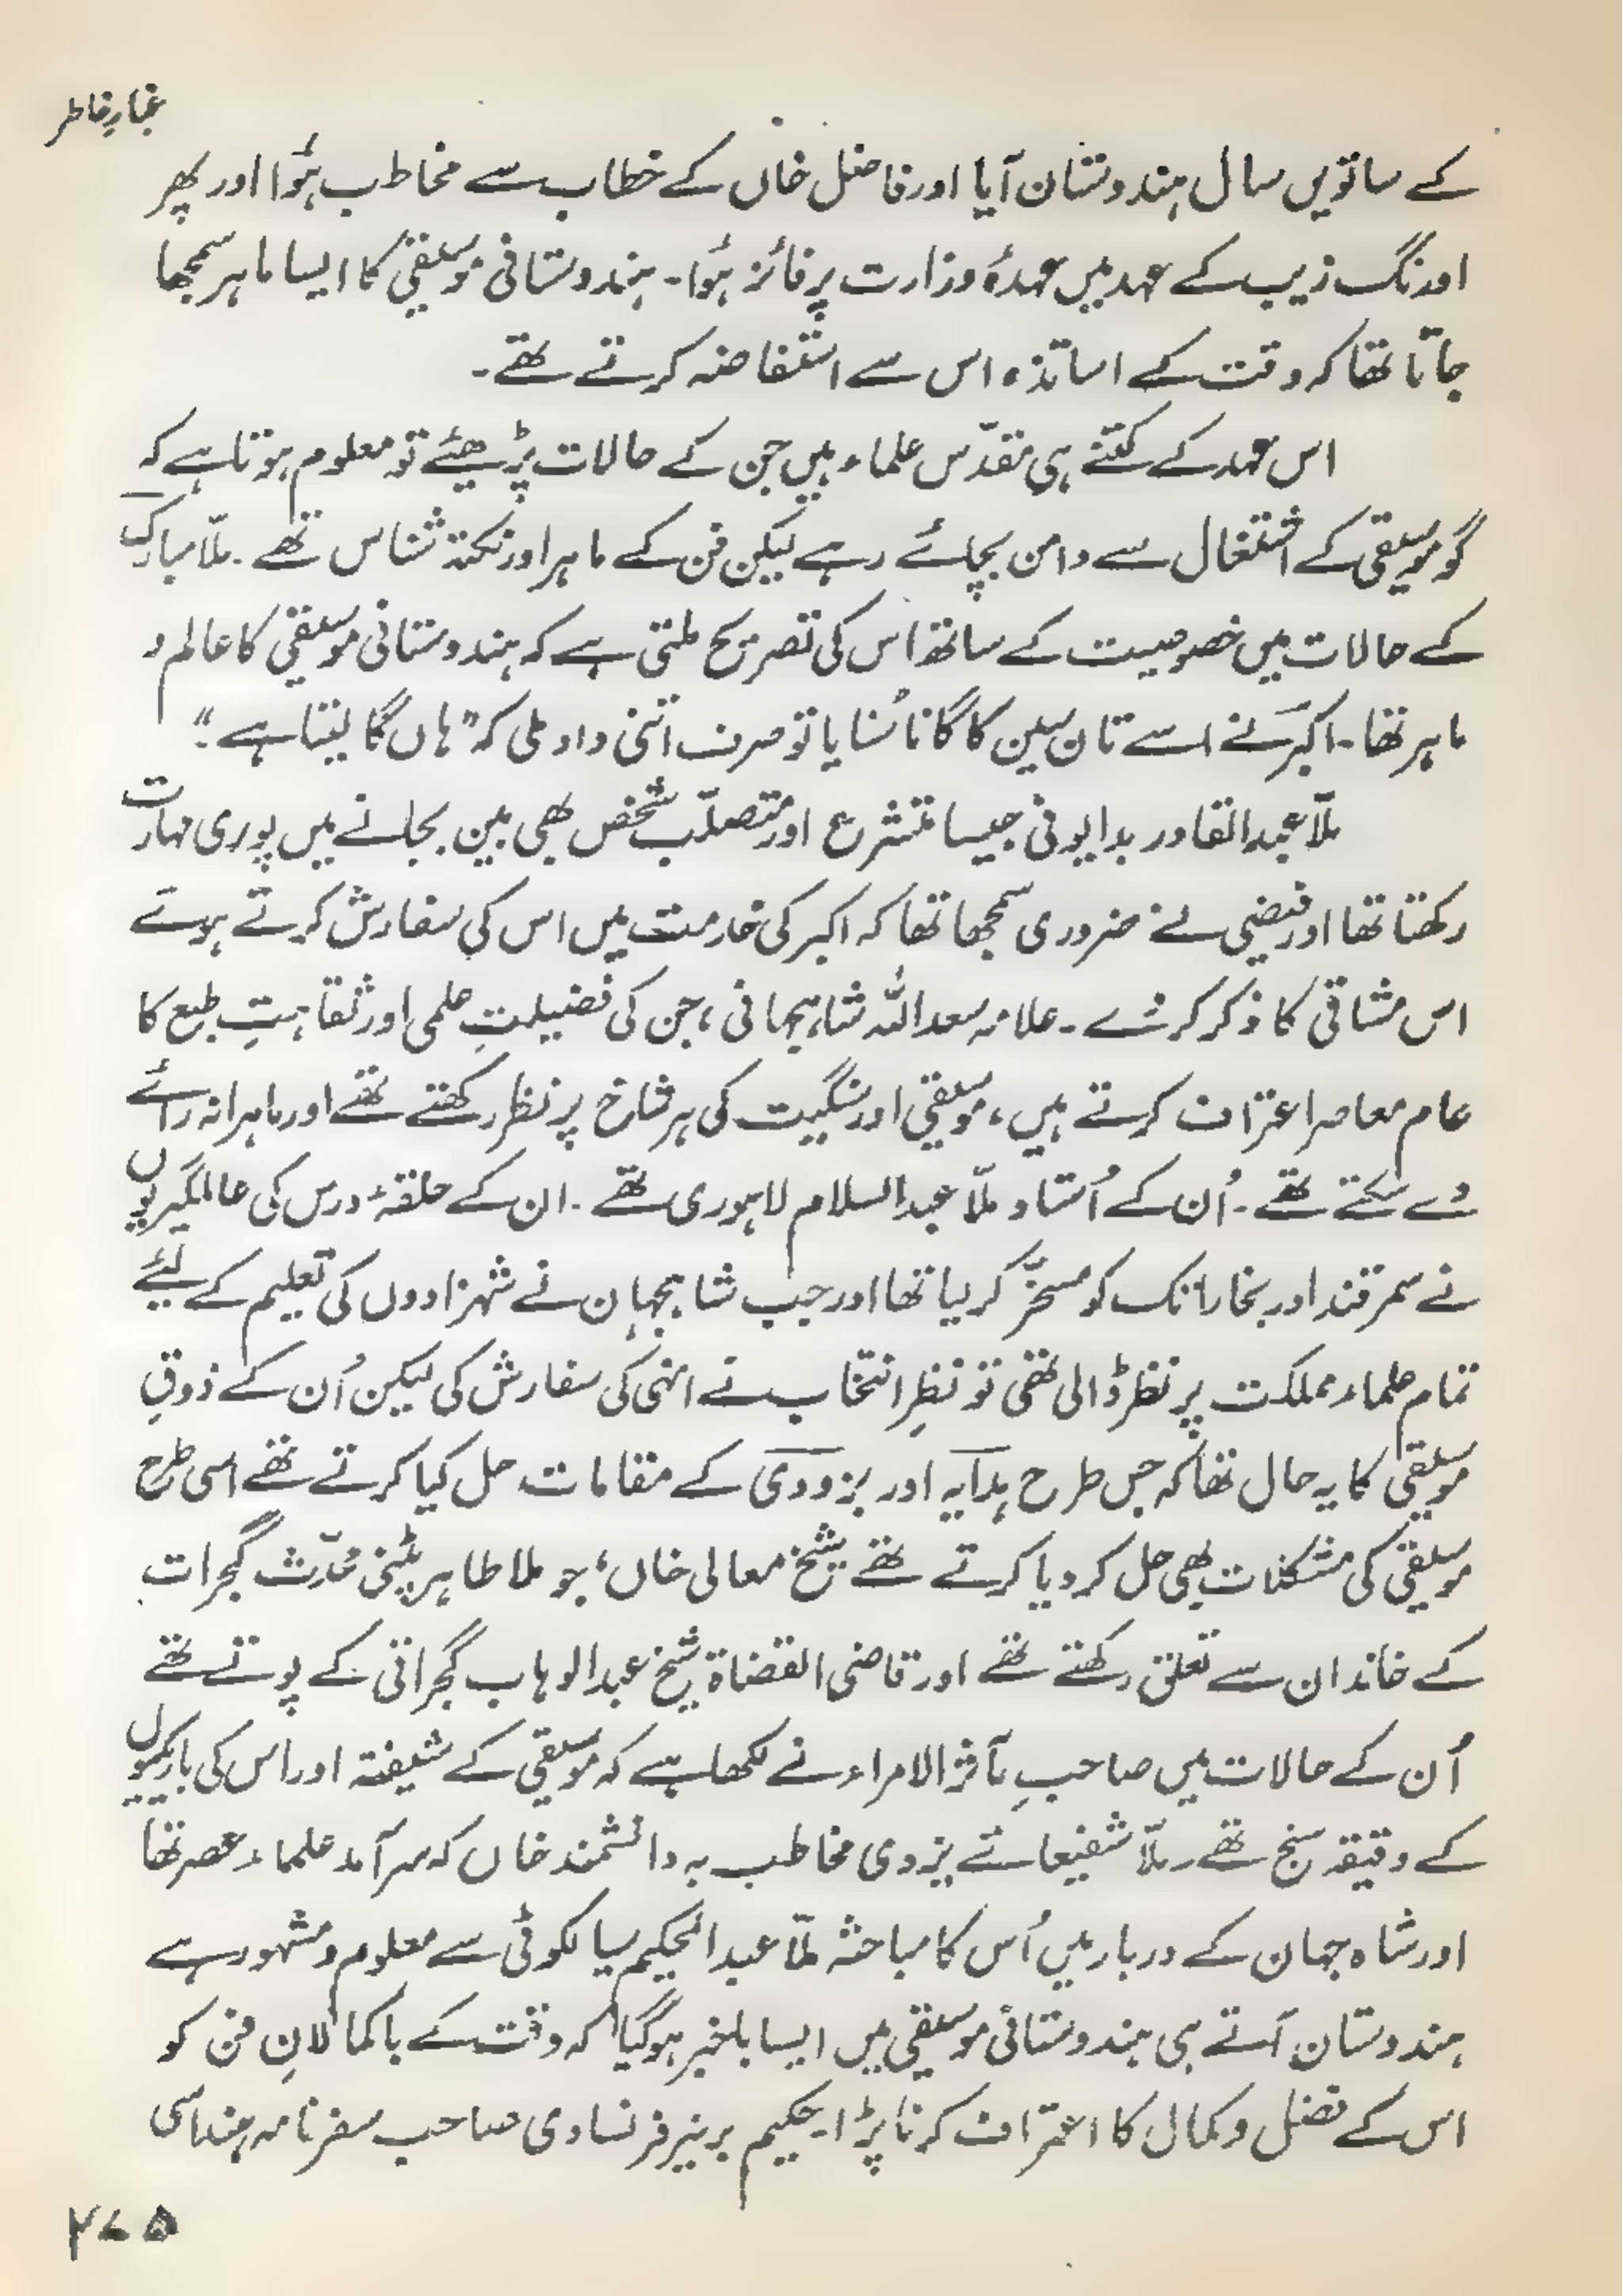 غبارِ خاطر
کے ساتویں سال ہندوستان آیا اور فاضل خاں کے خطاب سے مخاطب ہُوا اور پھر
اورنگ زیب کے عہد میں عہدۂ وزارت پر فائز ہُوا۔ ہندوستانی موسیقی کا ایسا ماہر سمجھا
جاتا تھا کہ وقت کے اساتذہ اس سے استفاضہ کرتے تھے۔
اس عہد کے کتنے ہی مقدّس علماء ہیں جن کے حالات پڑھیئے تو معلوم ہوتا ہے کہ
گو موسیقی کے اشتغال سے دامن بچائے رہے لیکن فن کے ماہر اور نکتہ شناس تھے۔ ملّا مبارک
کے حالات میں خصوصیت کے ساتھ اس کی تصریح ملتی ہے کہ ہندوستانی موسیقی کا عالم و
ماہر تھا۔ اکبر نے اسے تان سین کا گانا سُنایا تو صرف اتنی داد ملی کہ "ہاں گا لیتا ہے"۔
ملّا عبدالقادر بدایونی جیسا متشرع اور متصلّب شخص بھی بین بجانے میں پوری مہارت
رکھتا تھا اور فیضی نے ضروری سمجھا تھا کہ اکبر کی خدمت میں اس کی سفارش کرتے ہوئے
اس مشاقی کا ذکر کر دے۔ علامہ سعداللہ شاہجہانی، جن کی فضیلتِ علمی اور ثقاہتِ طبع کا
عام معاصر اعتراف کرتے ہیں، موسیقی اور سنگیت کی ہر شاخ پر نظر رکھتے تھے اور ماہرانہ رائے
دے سکتے تھے۔ اُن کے اُستاد ملّا عبدالسلام لاہوری تھے۔ ان کے حلقۂ درس کی عالمگیریوں
نے سمرقند اور بخارا تک کو مسخّر کر لیا تھا اور جب شاہجہان نے شہزادوں کی تعلیم کے لئے
تمام علماء مملکت پر نظر ڈالی تھی تو نظرِ انتخاب نے انہی کی سفارش کی لیکن اُن کے ذوقِ
موسیقی کا یہ حال تھا کہ جس طرح ہدایہ اور بزودی کے مقامات حل کیا کرتے تھے اسی طرح
موسیقی کی مشکلات بھی حل کر دیا کرتے تھے شیخ معالی خاں، جو ملا طاہر پٹنی محدّث گجرات
کے خاندان سے تعلق رکھتے تھے اور قاضی القضاۃ شیخ عبدالوہاب گجراتی کے پوتے تھے
اُن کے حالات میں صاحبِ مآثر الامراء نے لکھا ہے کہ موسیقی کے شیفتہ اور اس کی باریکیوں
کے دقیقہ سنج تھے۔ ملّا شفیعائے یزدی مخاطب بہ دانشمند خاں کہ سرآمد علماء عصر تھا
اور شاہ جہان کے دربار میں اُس کا مباحثہ ملّا عبدالحکیم سیالکوٹی سے معلوم و مشہور ہے
ہندوستان آتے ہی ہندوستانی موسیقی میں ایسا باخبر ہو گیا کہ وقت کے باکمالانِ فن کو
اس کے فضل و کمال کا اعتراف کرنا پڑا۔ حکیم برنیر فرنساوی صاحب سفرنامہ ہند اسی
۲۷۵